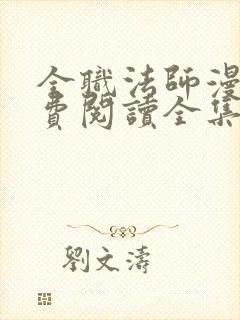 全職法師漫
費閱讀全集
劉文濤